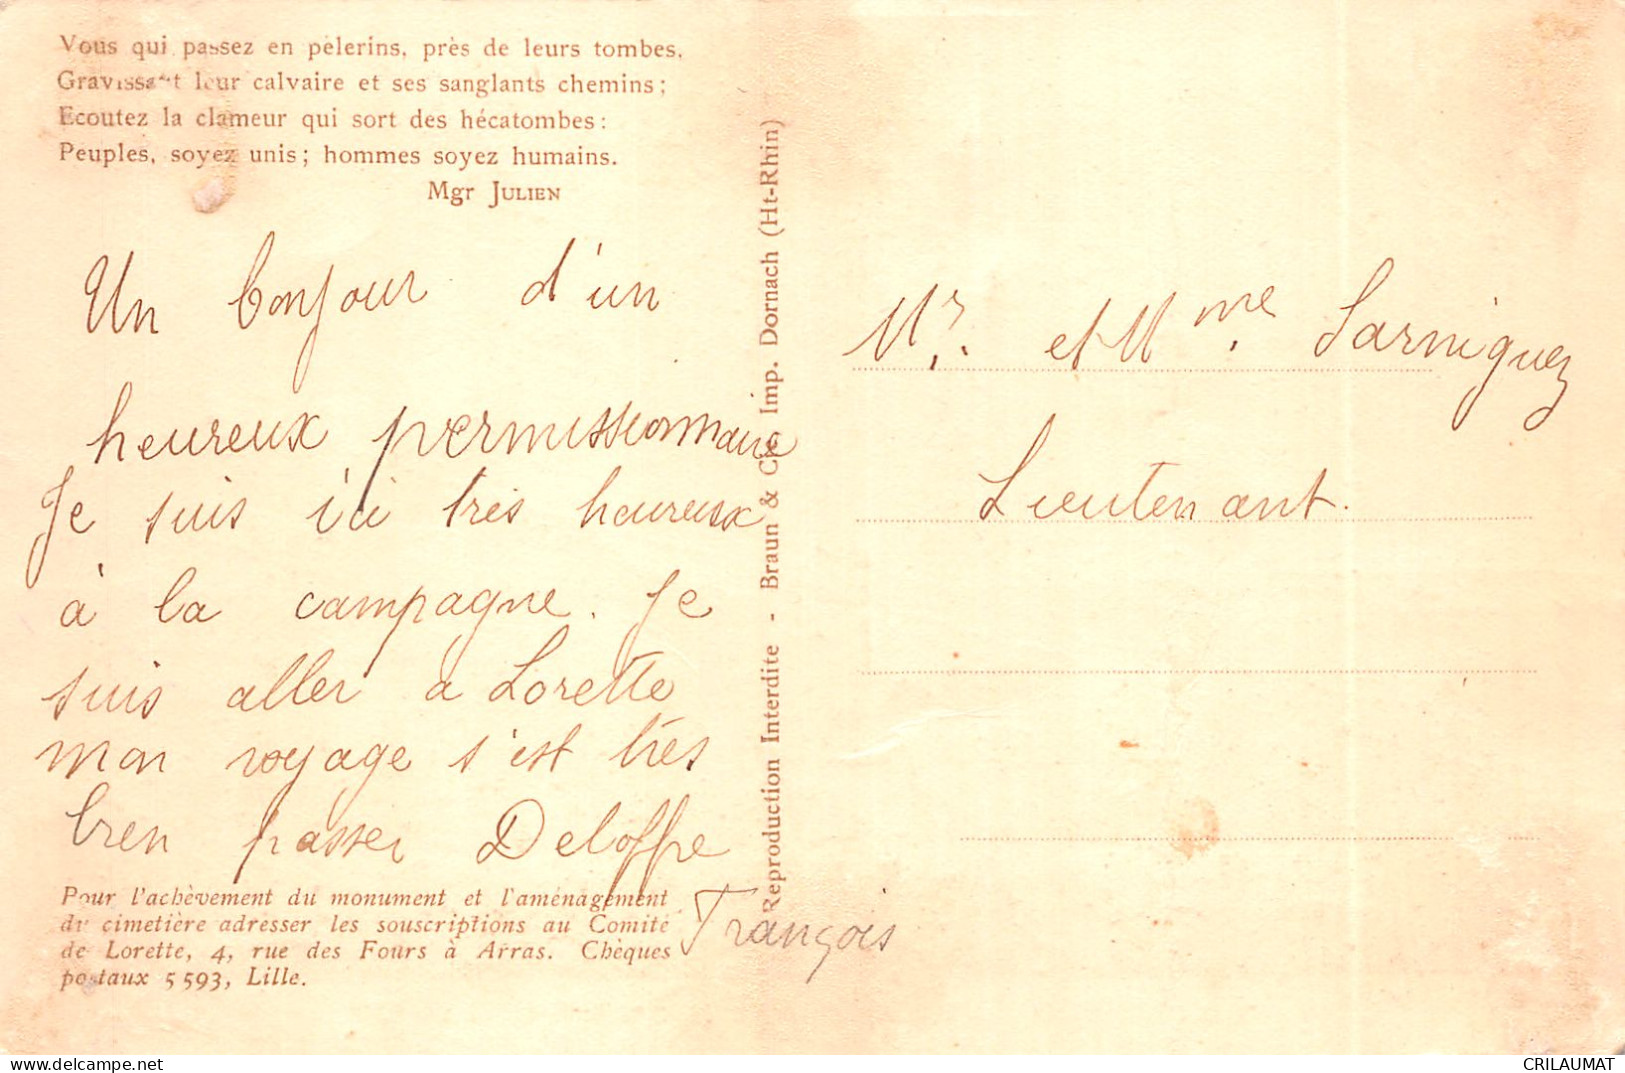 Vous qui passez en pèlerins, près de leurs tombes,
Gravissant leur calvaire et ses sanglants chemins ;
Ecoutez la clameur qui sort des hécatombes :
Peuples, soyez unis ; hommes soyez humains.
Mgr JULIEN
Un bonjour d'un
heureux permissionnaire
Je suis ici très heureux
à la campagne. Je
suis aller a Lorette
mon voyage s'est très
bien passer Deloffre
François
Pour l'achèvement du monument et l'aménagement
du cimetière adresser les souscriptions au Comité
de Lorette, 4, rue des Fours à Arras. Chèques
postaux 5 593, Lille.
Reproduction Interdite - Braun & Cie Imp. Dornach (Ht-Rhin)
Mr. et Mme. Sarniguez
Lieutenant.
www.delcampe.net
CRILAUMAT